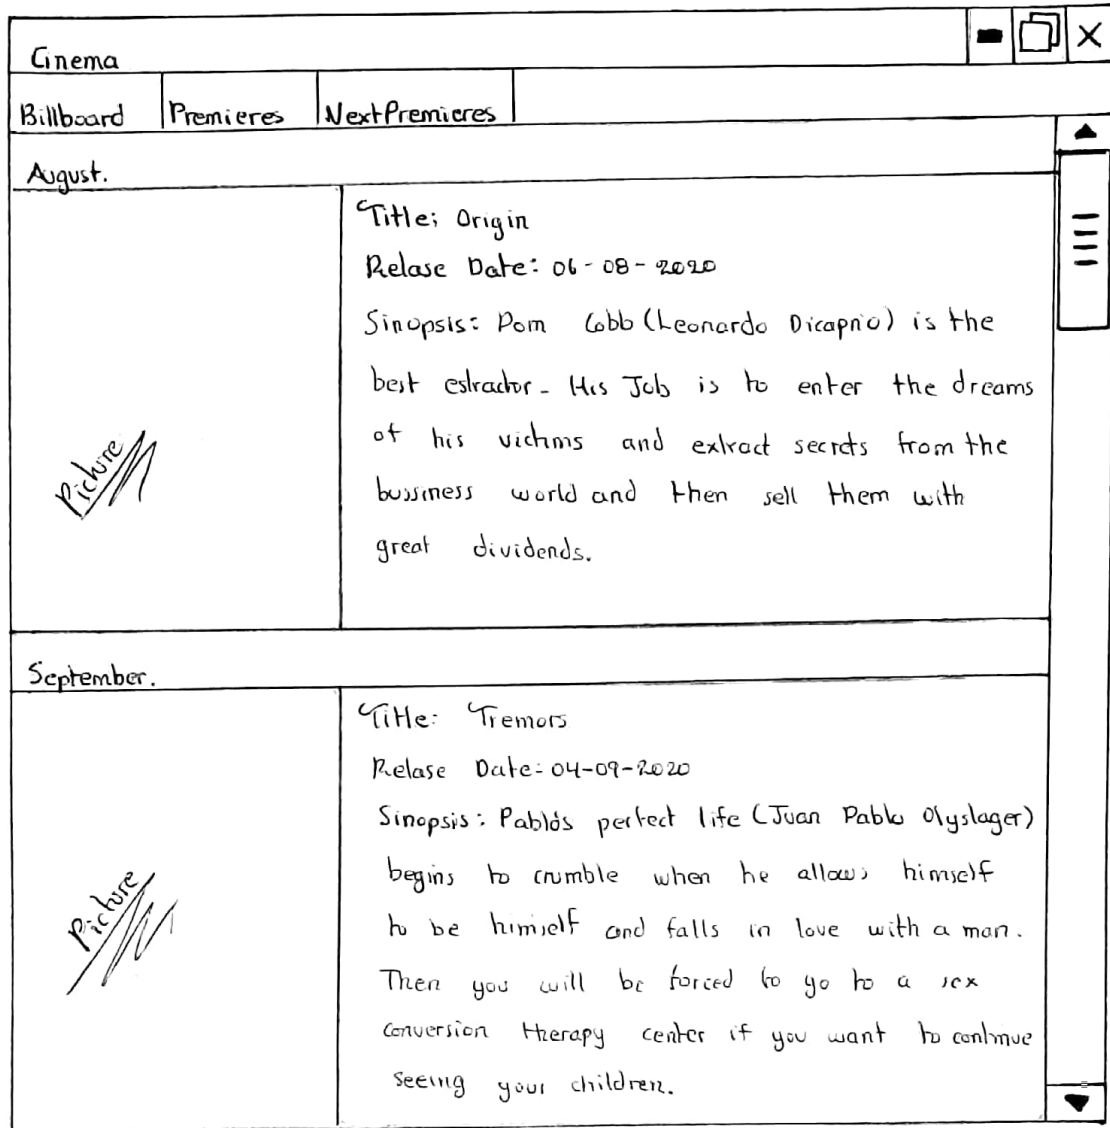 Cinema
Billboard Premieres Next Premieres
August.
Title; Origin
Relase Date: 06-08-2020
Sinopsis: Dom Cobb (Leonardo Dicaprio) is the
best estractor. His Job is to enter the dreams
of his victims and extract secrets from the
bussiness world and then sell them with
great dividends.
Picture
September.
Title: Tremors
Relase Date: 04-09-2020
Sinopsis: Pablo's perfect life (Juan Pablo Olyslager)
begins to crumble when he allows himself
to be himself and falls in love with a man.
Then you will be forced to go to a sex
conversion therapy center if you want to continue
seeing your children.
Picture